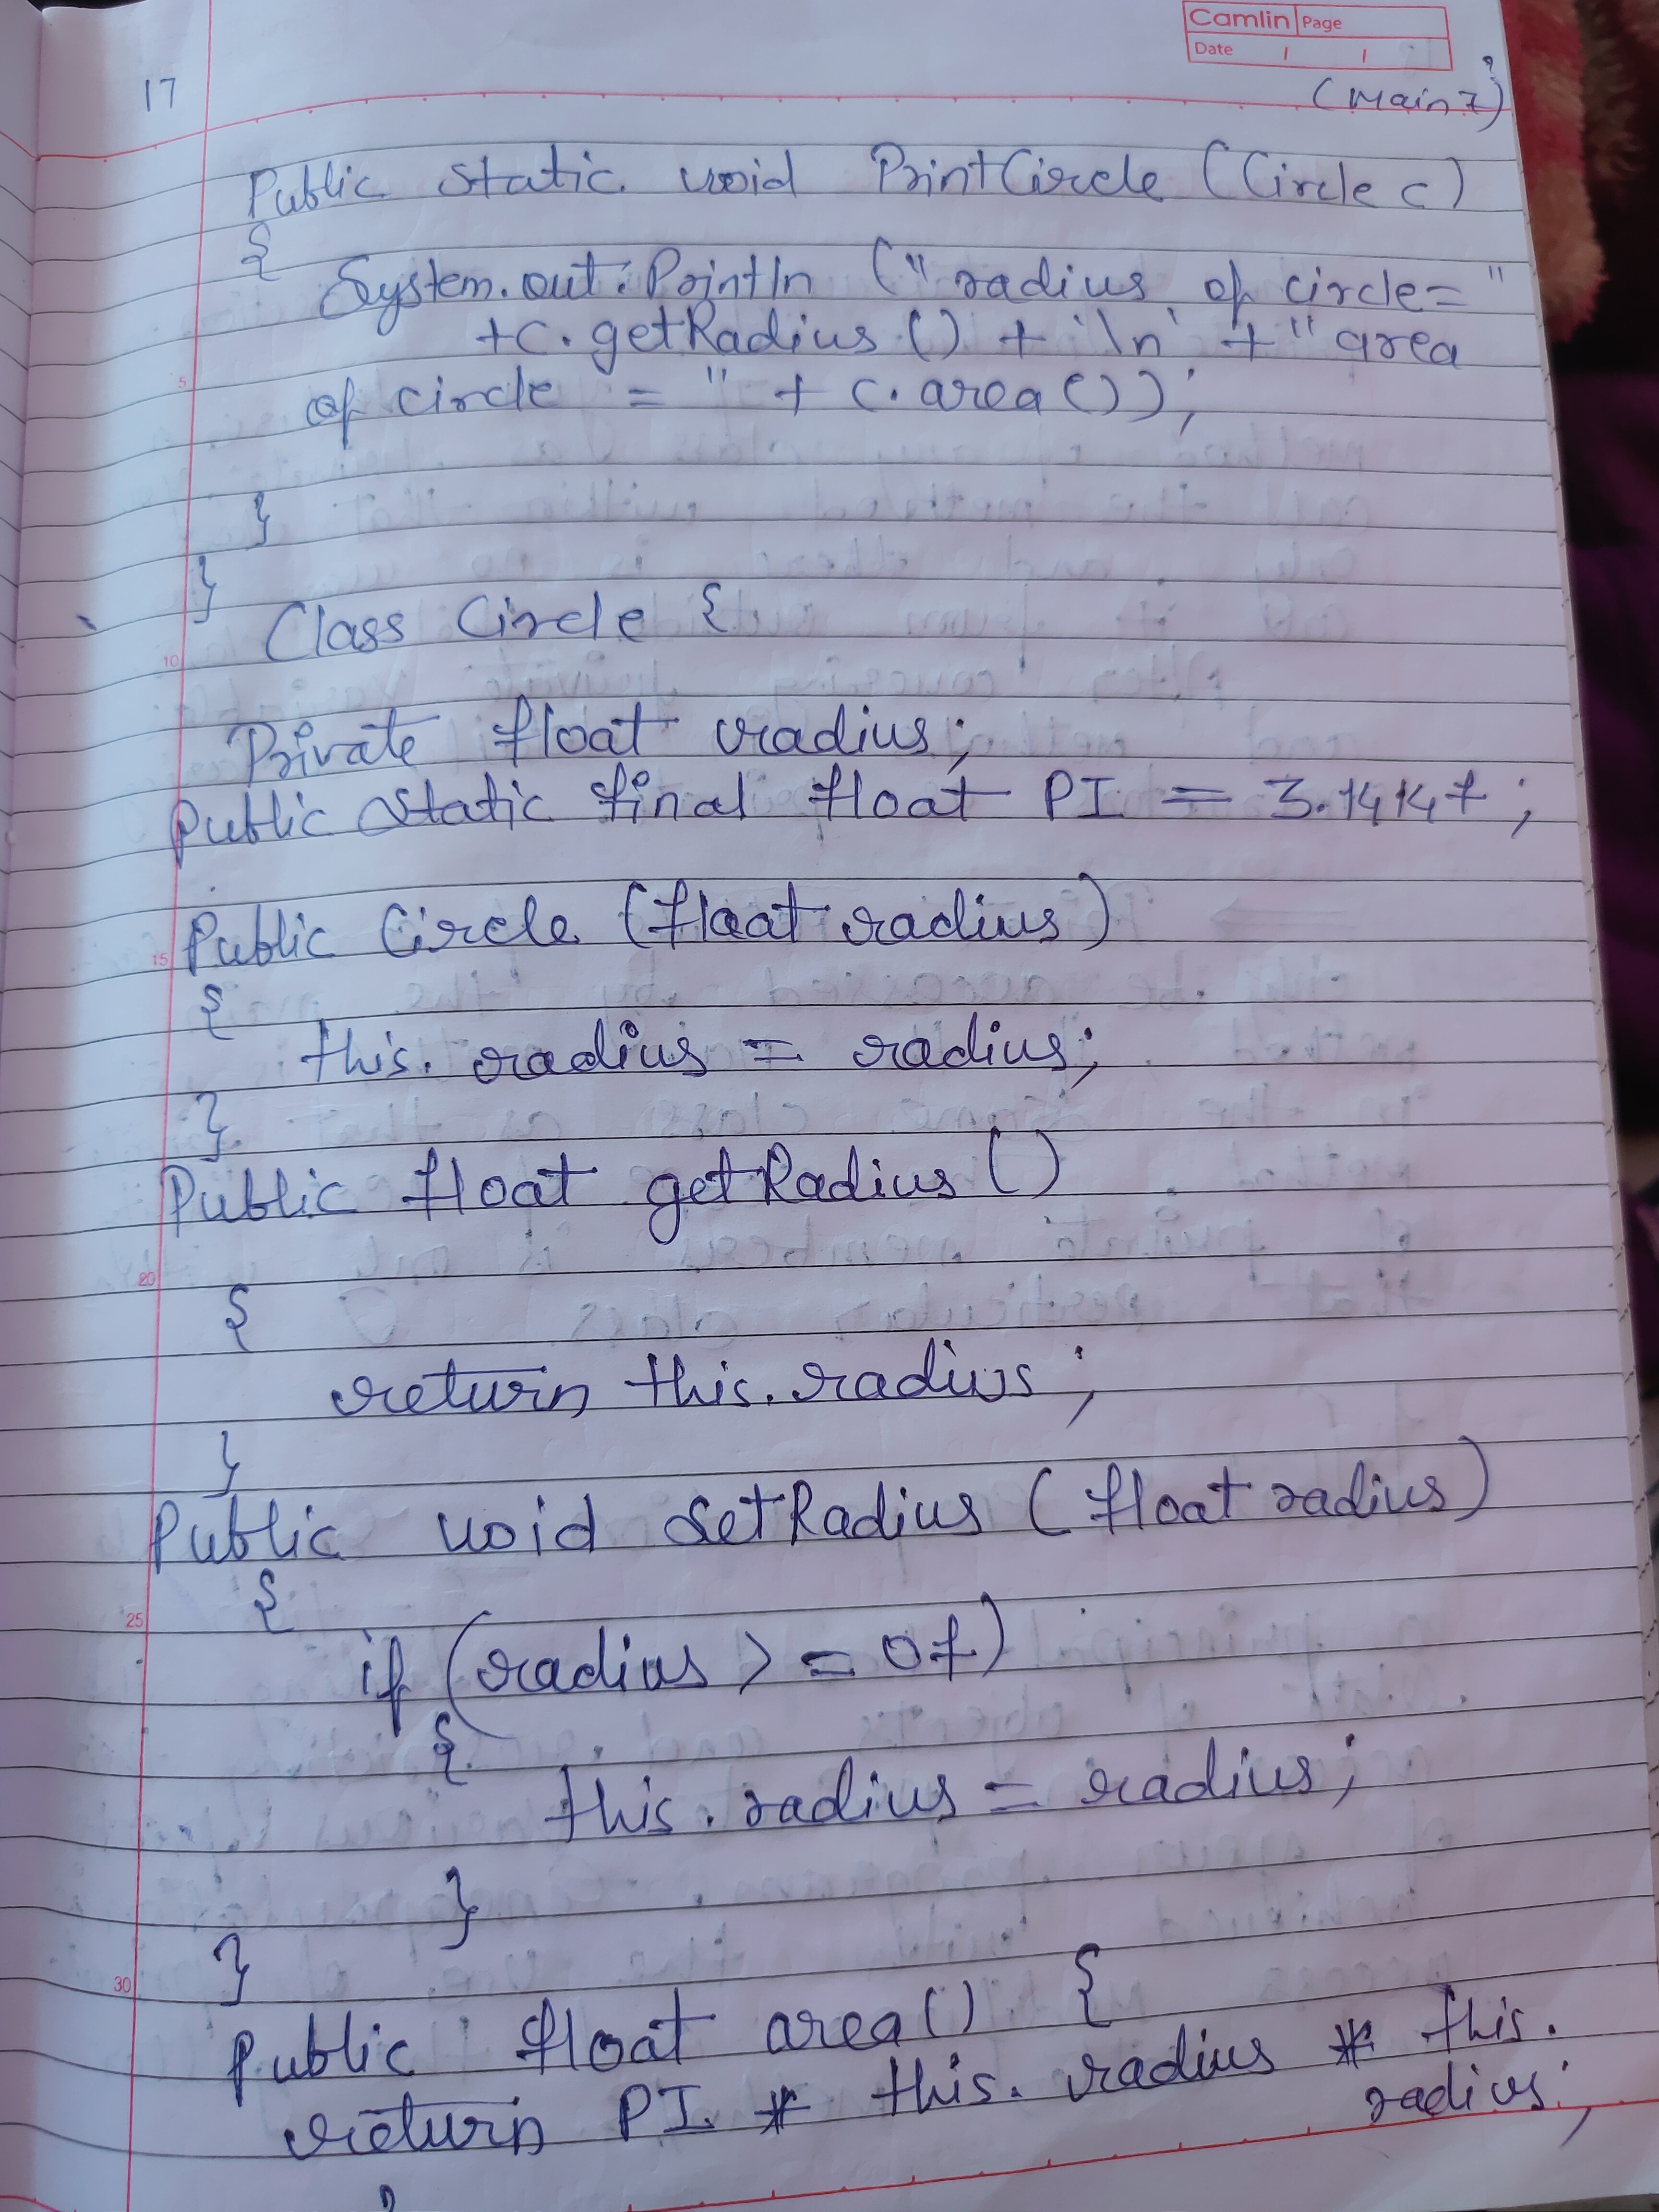 Camlin Page
Date / /
17
(Main7)
Public static void PrintCircle (Circle c)
{
System.out.Println ("radius of circle="
+c.getRadius () + '\n' + "area
of circle = " + c.area ());
}
}
Class Circle {
Private float radius;
Public static final float PI = 3.1414f;
Public Circle (float radius)
{
this.radius = radius;
}
Public float getRadius ()
{
return this.radius;
}
Public void SetRadius (float radius)
{
if (radius >= 0f)
{
this.radius = radius;
}
}
Public float area() {
return PI * this.radius * this.
radius;
5
10
15
20
25
30